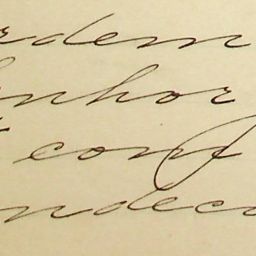 rdem
nhor
conf
ndeco